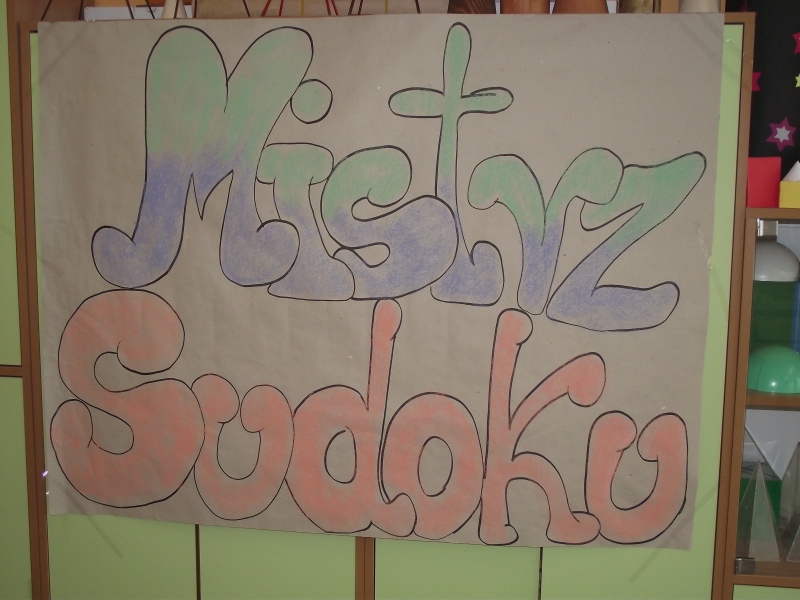 Mistrz
Sudoku